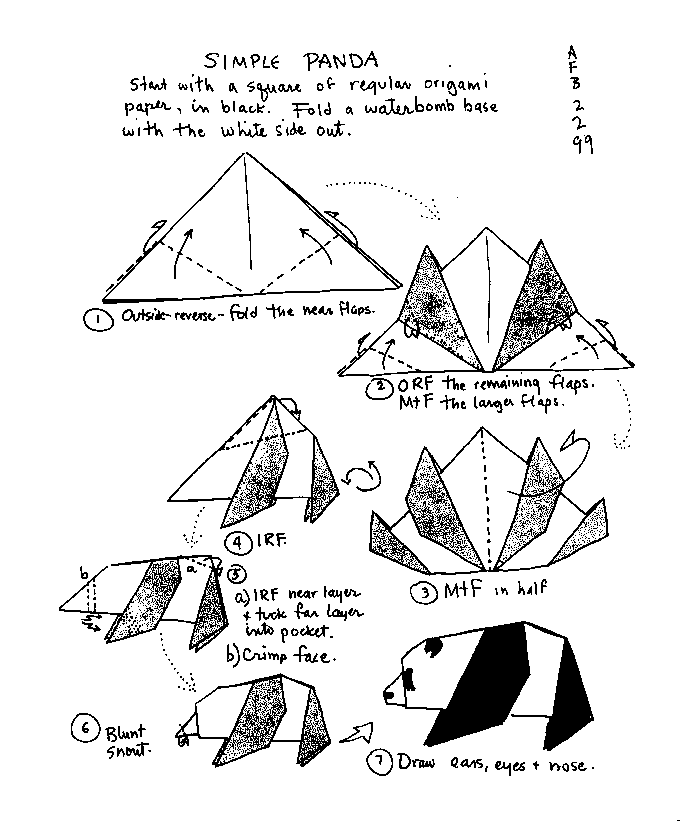 SIMPLE PANDA
Start with a square of regular origami
paper, in black. Fold a waterbomb base
with the white side out.
A
F
B
2
2
99
1 Outside-reverse-fold the near flaps.
2 ORF the remaining flaps.
MtF the larger flaps.
3 MtF in half
4 IRF
b
a
5
a) IRF near layer
+ tuck far layer
into pocket.
b) Crimp face.
6 Blunt
snout.
7 Draw ears, eyes + nose.